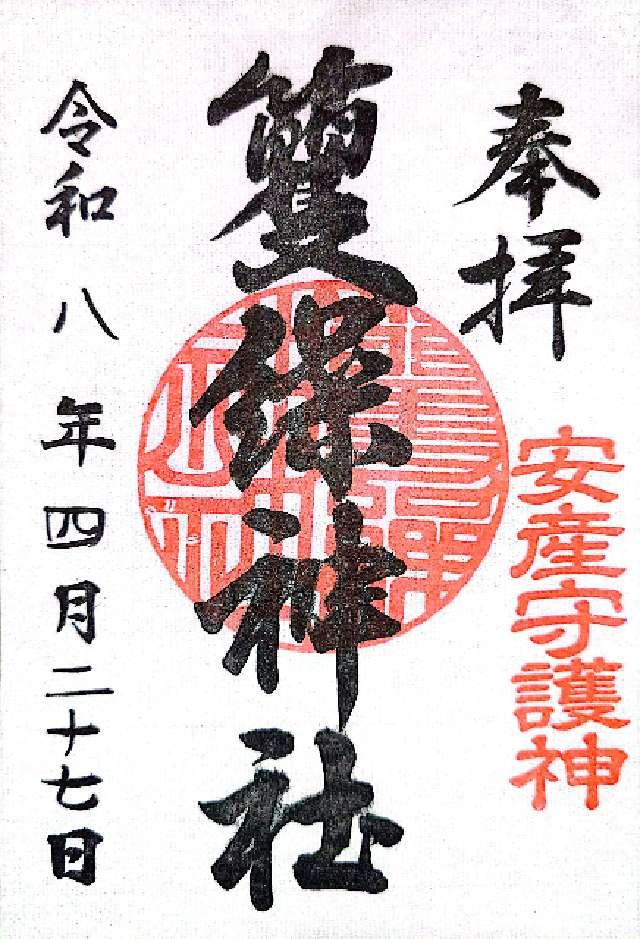 奉拝
安産守護神
神社
令和八年四月二十七日